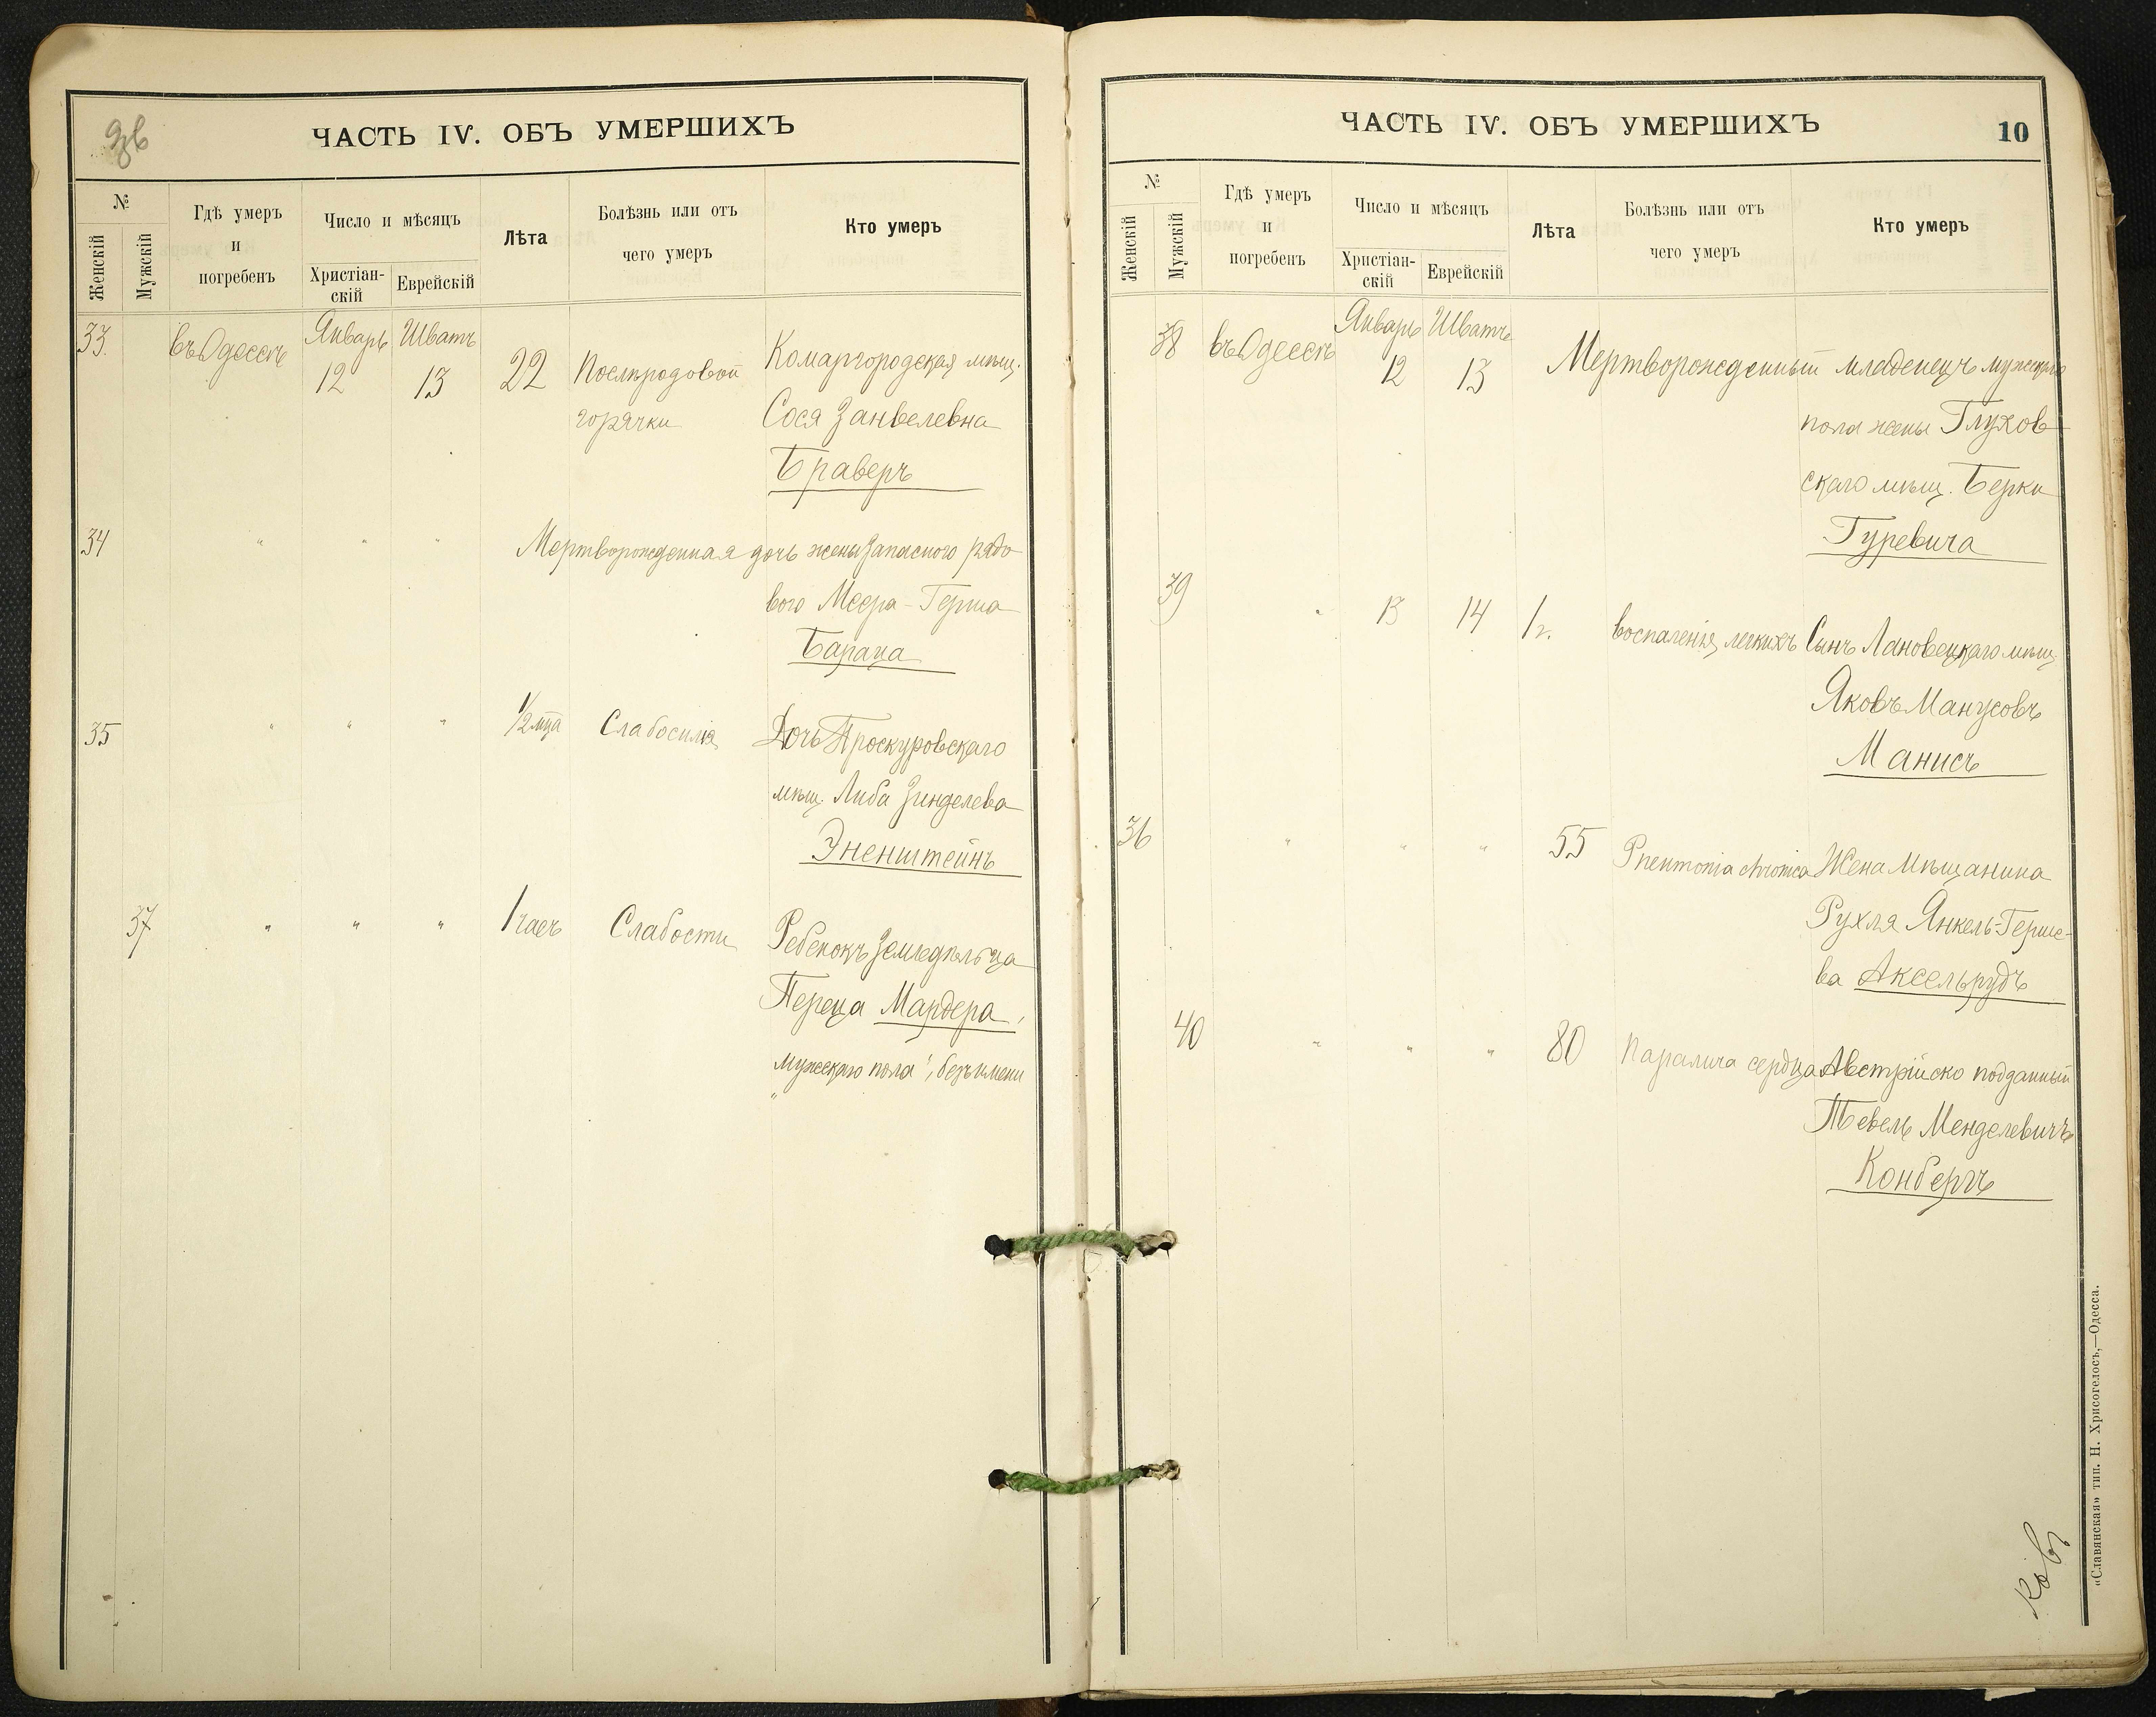 ЧАСТЬ IV. ОБЪ УМЕРШИХЪ
№
Женскій
Мужскій
Гдѣ умеръ
и
погребенъ
Число и мѣсяцъ
Христіан-
скій
Еврейскій
Лѣта
Болѣзнь или отъ
чего умеръ
Кто умеръ
33. въ Одессѣ Январь 12 Шватъ 13 22 Послѣродовой Комаргородская мѣщ.
горячки Сося Занвелевна
Браверъ
34 " " " Мертворожденная дочь жены запасного рядо
вого Меера-Герша
Бараца
35 " " " 1/2 мѣца Слабосилія Дочь Проскуровскаго
мѣщ. Либа Зинделева
Эненштейнъ
37 " " " 1 часъ Слабости Ребенокъ земледѣльца
Переца Мардера,
мужскаго пола, безъ имени
ЧАСТЬ IV. ОБЪ УМЕРШИХЪ
10
№
Женскій
Мужскій
Гдѣ умеръ
и
погребенъ
Число и мѣсяцъ
Христіан-
скій
Еврейскій
Лѣта
Болѣзнь или отъ
чего умеръ
Кто умеръ
38 въ Одессѣ Январь 12 Шватъ 13 Мертворожденный младенецъ мужскаго
пола жены Глухов
скаго мѣщ. Берки
Гуревича
39 " 13 14 1 г. воспаленія легкихъ Сынъ Лановецкаго мѣщ.
Яковъ Манусовъ
Манисъ
36 " " " 55 Pneumonia chronica Жена мѣщанина
Рухля Янкель-Герше-
ва Аксельрудъ
40 " " " 80 Паралича сердца Австрійско подданный
Тевель Менделевичъ
Конбергъ
«Славянская» тип. Н. Хрисогелосъ,—Одесса.